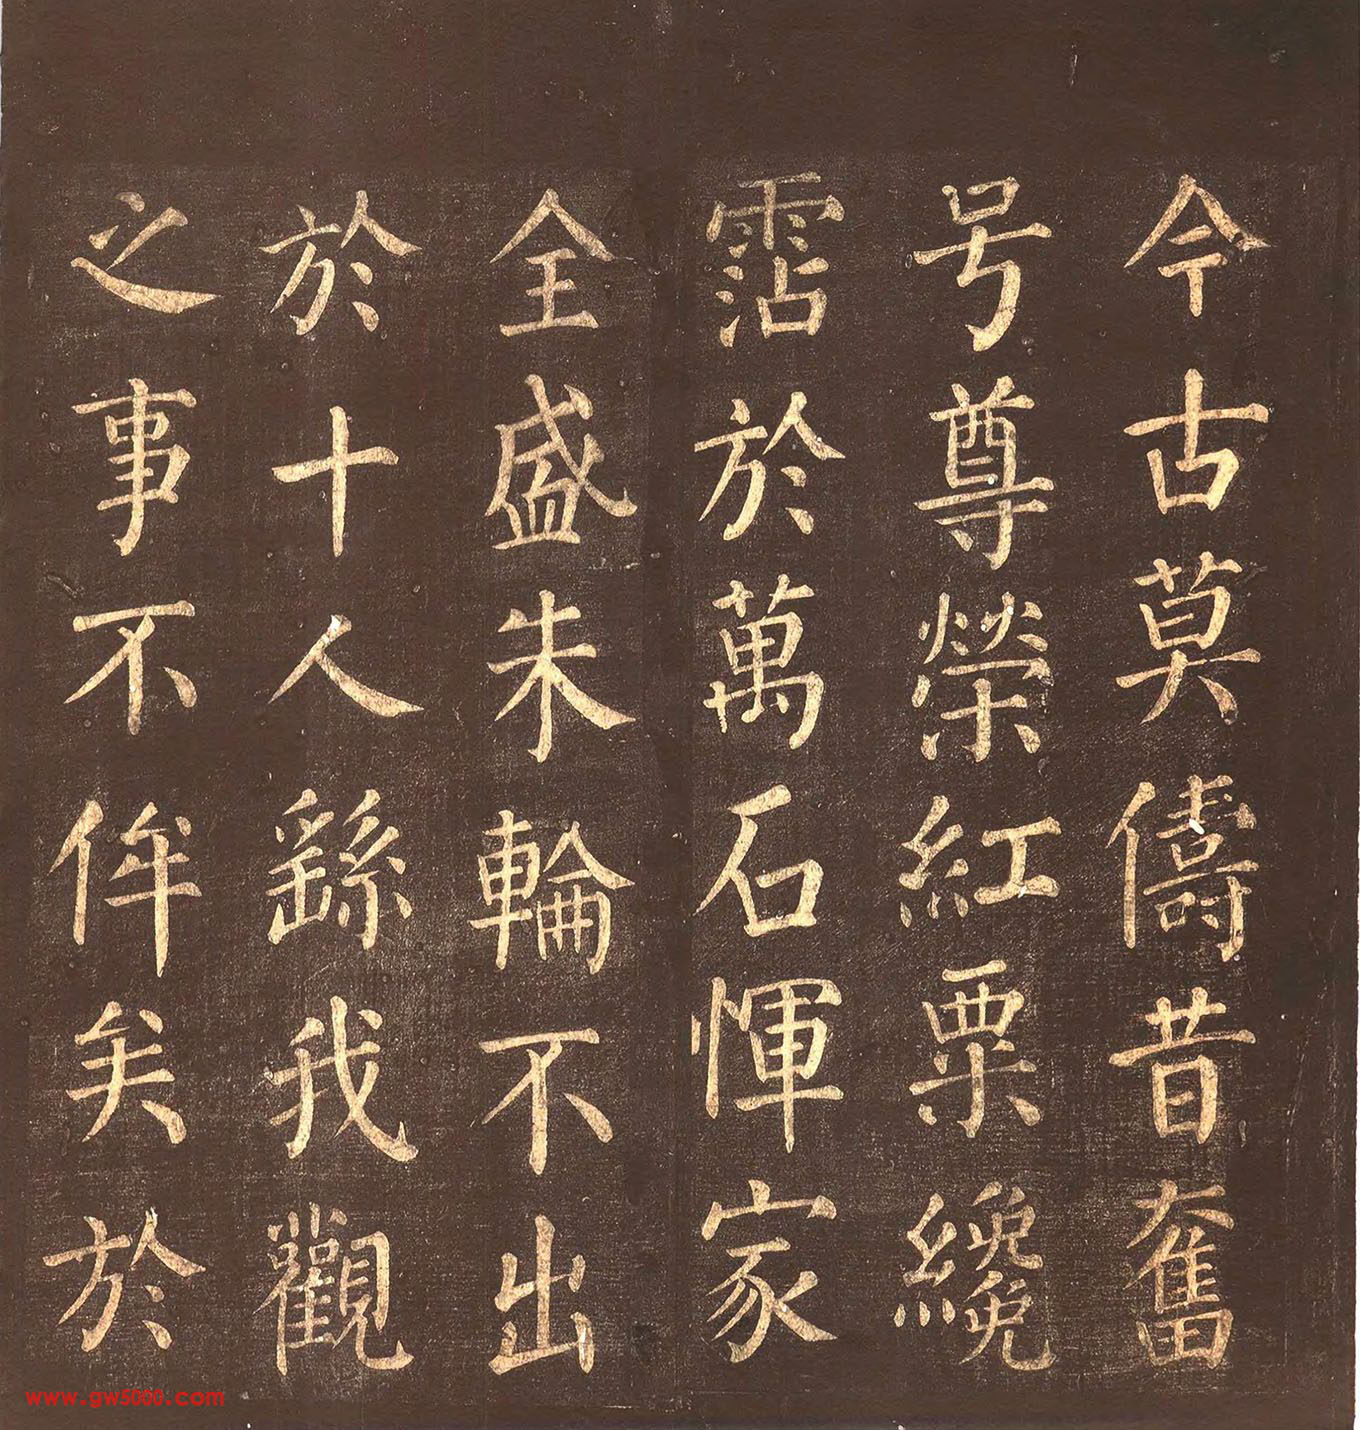 今古莫儔昔奮
号尊榮紅粟纔
霑於萬石惲家
全盛朱輪不出
於十人繇我觀
之事不侔矣於
www.gw5000.com